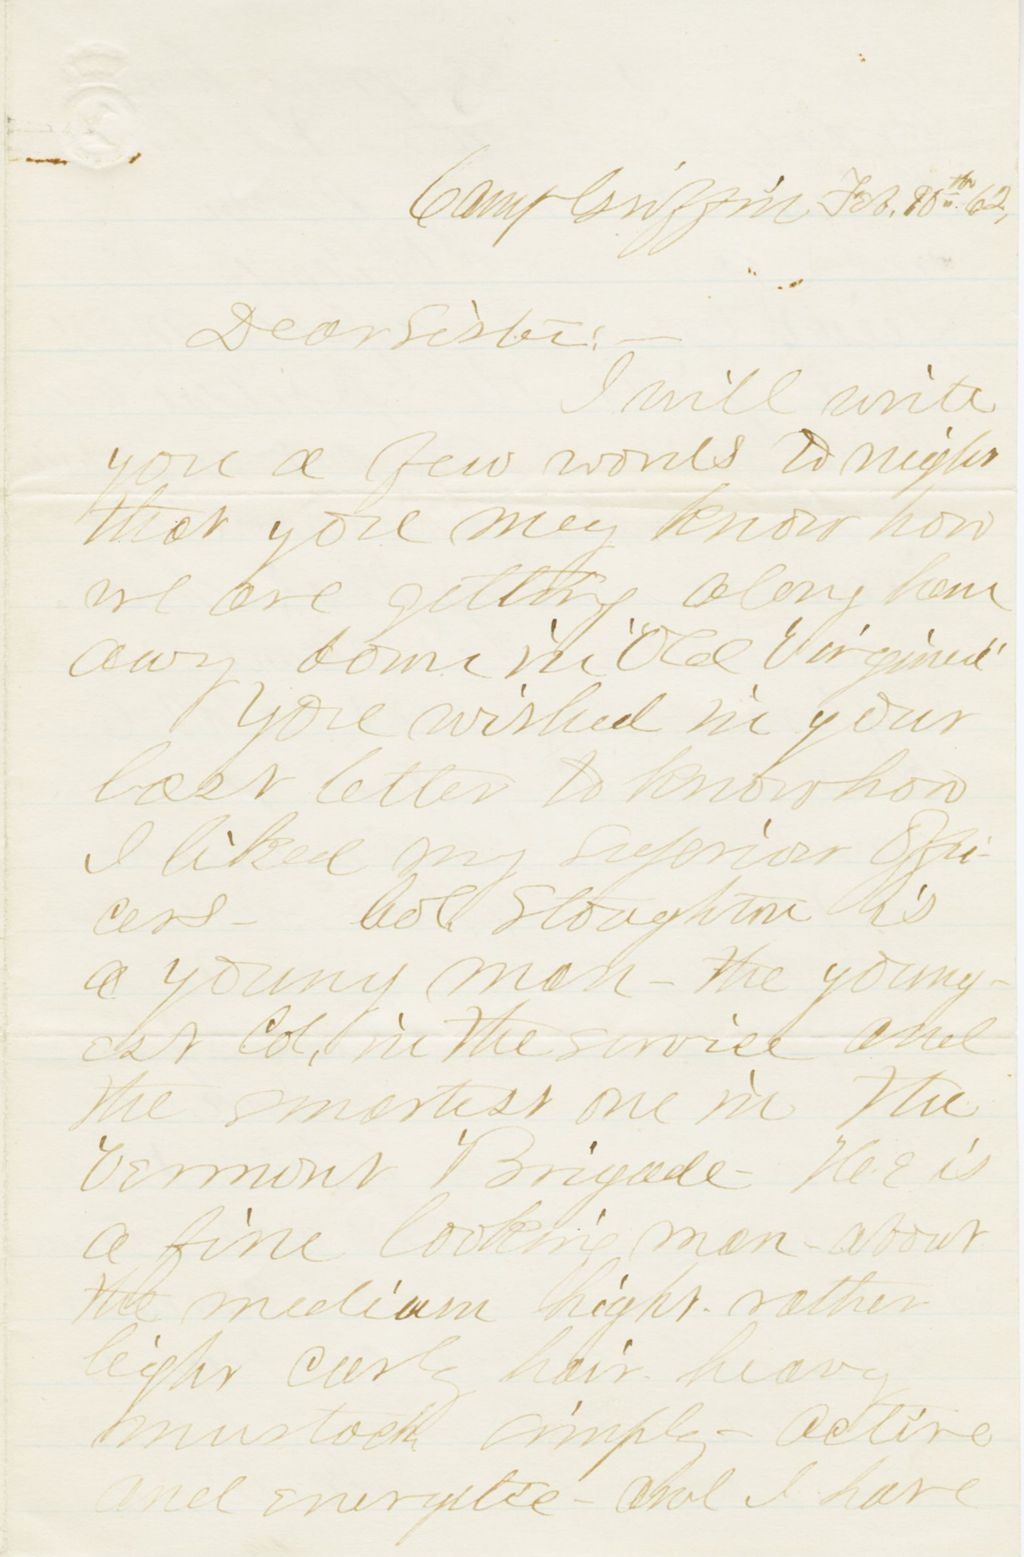 Camp Griffin Feb. 10th 62,
Dear Sister:—
I will write
you a few words to night
that you may know how
we are getting along here
away down in "Old Virginia"
You wished in your
last letter to know how
I liked my Superior Offi-
cers— Col. Stoughton is
a young man— the young-
est Col, in the service and
the smartest one in the
Vermont Brigade— He is
a fine looking man— about
the medium hight. rather
light curly hair. heavy
mustach simply— active
and energetic— and I have